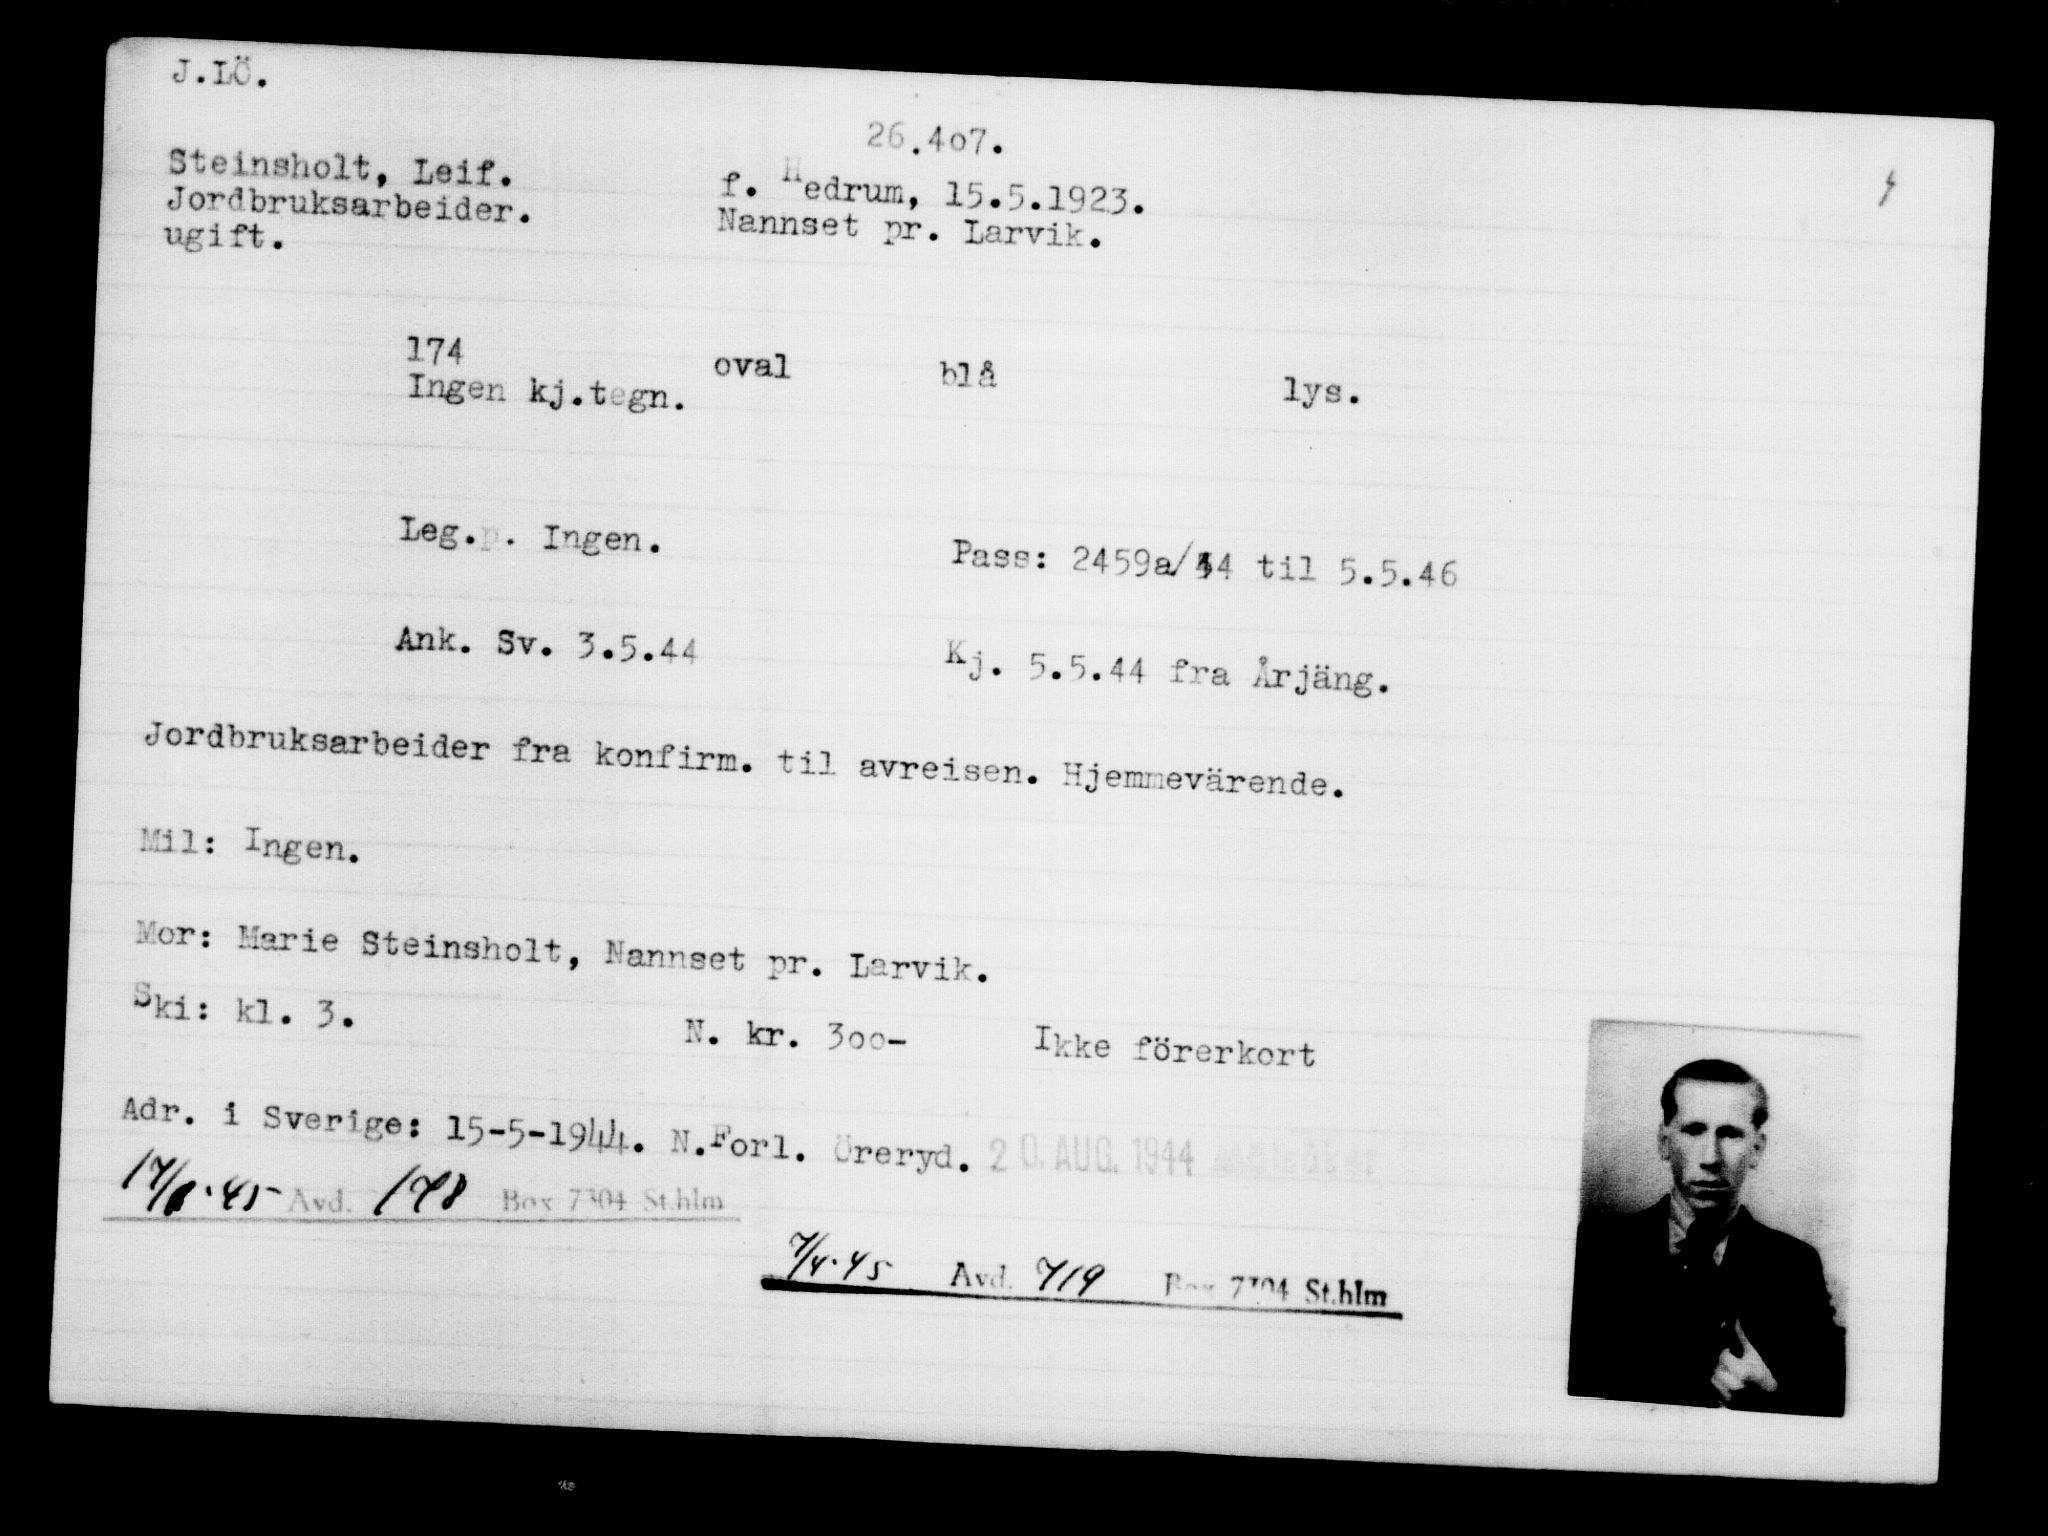 J.LÖ.
26.4o7.
Steinsholt, Leif.
f. Hedrum, 15.5.1923.
Jordbruksarbeider.
Nannset pr. Larvik.
ugift.
174
oval
blå
lys.
Ingen kj.tegn.
Leg.p. Ingen.
Pass: 2459a/44 til 5.5.46
Ank. Sv. 3.5.44
Kj. 5.5.44 fra Årjäng.
Jordbruksarbeider fra konfirm. til avreisen. Hjemmevärende.
Mil: Ingen.
Mor: Marie Steinsholt, Nannset pr. Larvik.
Ski: kl. 3.
N. kr. 3oo-
Ikke förerkort
Adr. i Sverige: 15-5-1944. N.Forl. Öreryd. 20. AUG. 1944
Avd. 178 Box 7304 St.hlm
7/4.45 Avd. 719 Box 7304 St.hlm